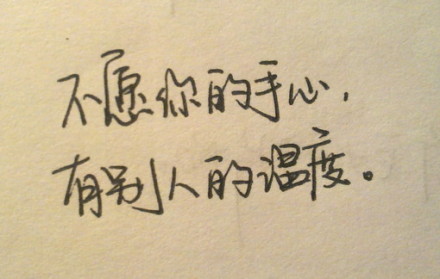 不愿你的手心,
有别人的温度。